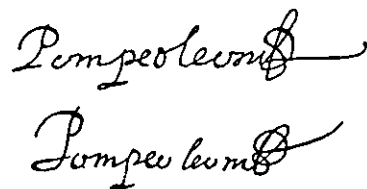 Pompeo leoni
Pompeo leoni